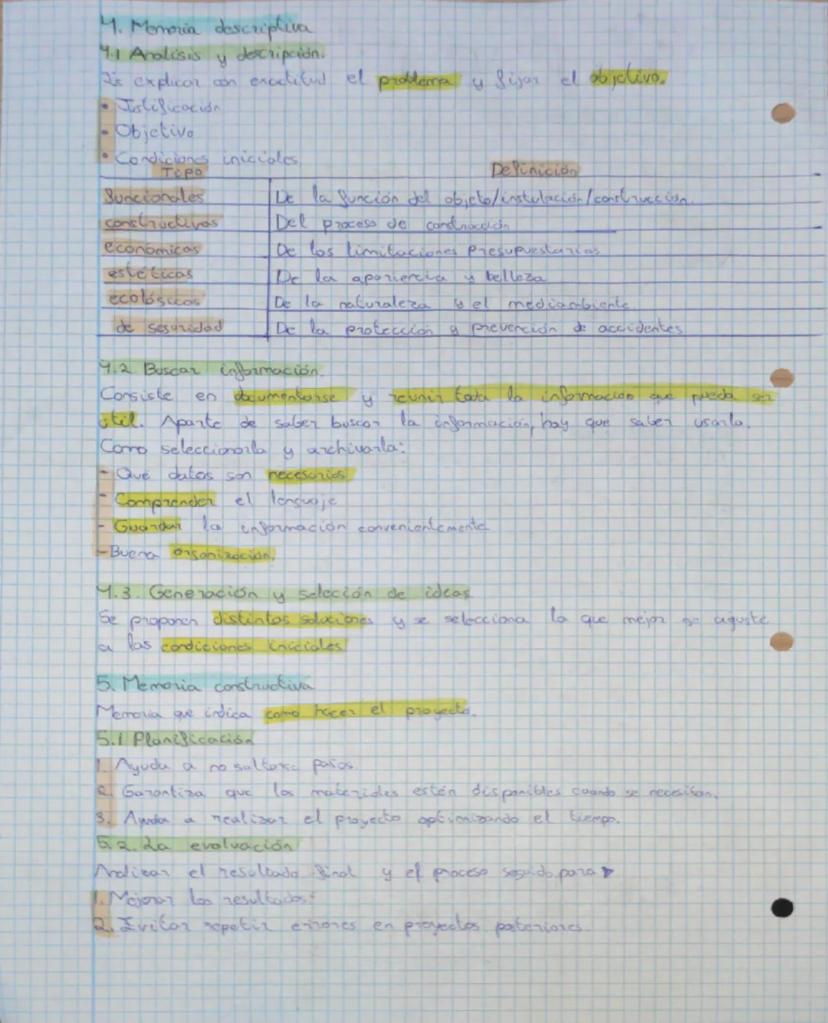 4. Memoria descriptiva
4.1 Analisis y descripción.
Es explicar con exactitud el problema y fijar el objetivo.
• Justificación
• Objetivo
• Condiciones iniciales
Tipo Definición
funcionales De la función del objeto/instalación/construcción.
constructivas Del proceso de construcción
economicas De las limitaciones presupuestarias
estéticas De la apariencia y belleza
ecológicas De la naturaleza y el mediambiente
de seguridad De la protección y prevención de accidentes
4.2 Buscar información.
Consiste en documentarse y reunir toda la información que pueda ser
útil. Aparte de saber buscar la información, hay que saber usarla.
Como seleccionarla y archivarla:
- Qué datos son necesarios
- Comprender el lenguaje
- Guardar la información convenientemente
- Buena organización.
4.3. Generación y selección de ideas
Se proponen distintas soluciones y se selecciona la que mejor se ajuste
a las condiciones iniciales
5. Memoria constructiva
Memoria que indica como hacer el proyecto.
5.1 Planificación
1. Ayuda a no saltarse pasos.
2. Garantiza que los materiales estén disponibles cuando se necesitan.
3. Ayuda a realizar el proyecto optimizando el tiempo.
5.2. La evaluación
Analizar el resultado final y el proceso seguido para
1. Mejorar los resultados.
2. Evitar repetir errores en proyectos posteriores.